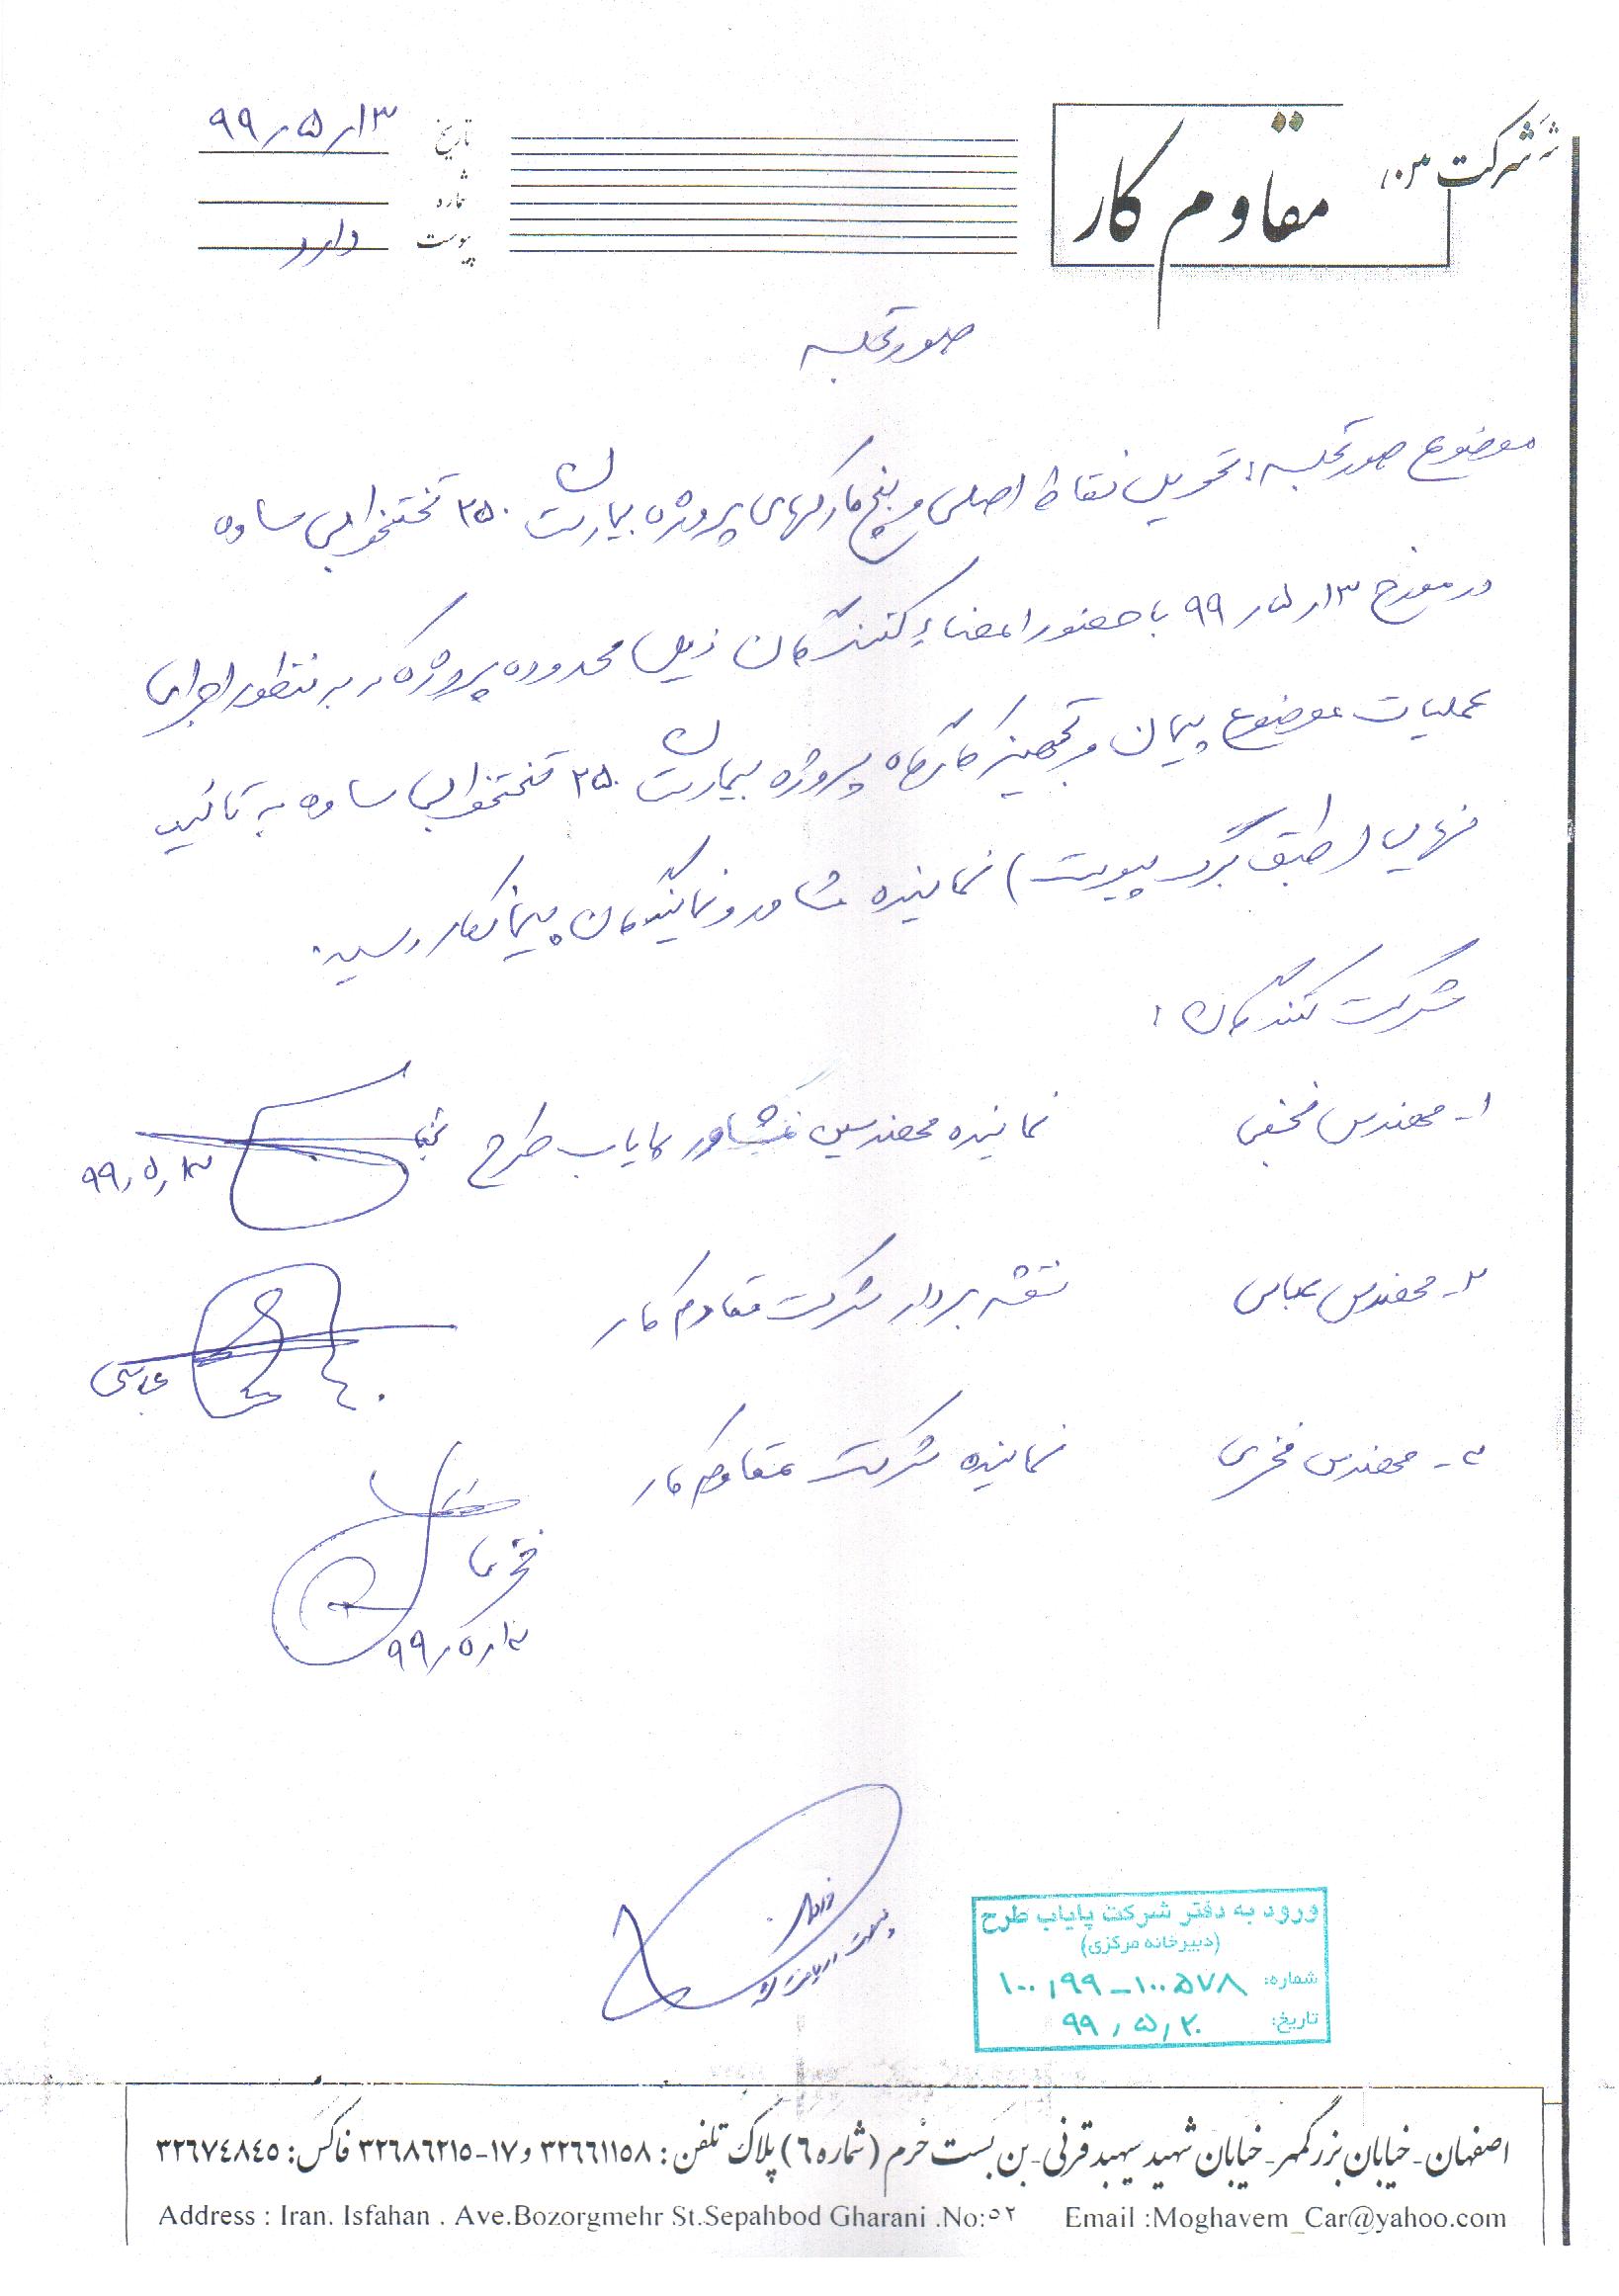 شرکت
مقاوم کار
تاریخ ۹۹٫۵٫۱۳
شماره
پیوست دارد
صورتجلسه
موضوع صورتجلسه: تحویل نقاط اصلی و بنچ مارکهای پروژه بیمارستان ۲۵۰ تختخوابی ساوه
در مورخ ۹۹٫۵٫۱۳ با حضور امضاء کنندگان ذیل محدوده پروژه که به منظور اجرای
عملیات موضوع پیمان و تجهیز کارگاه پروژه بیمارستان ۲۵۰ تختخوابی ساوه به تائید
نهایی (طبق برگ پیوست) نماینده مشاور و نمایندگان پیمانکار رسید.
شرکت کنندگان:
۱- مهندس نماینده مهندسین مشاور پایاب طرح
۹۹٫۵٫۱۳
۲- مهندس عباسی نقشه بردار شرکت مقاوم کار
عباسی
۳- مهندس فخری نماینده شرکت مقاوم کار
فخری
۹۹٫۵٫۱۳
ورود به دفتر شرکت پایاب طرح
(دبیرخانه مرکزی)
شماره: ۱۰۰٫۹۹-۱۰۰۵۷۸
تاریخ: ۹۹٫۵٫۲۰
اصفهان - خیابان بزرگمهر - خیابان شهید سپهبد قرنی - بن بست خرم (شماره ۶) پلاک تلفن: ۳۲۶۶۱۱۵۸ و ۱۷-۳۲۶۸۶۲۱۵ فاکس: ۳۲۶۷۴۸۴۵
Address : Iran. Isfahan . Ave.Bozorgmehr St.Sepahbod Gharani .No:۵۲ Email :Moghavem_Car@yahoo.com